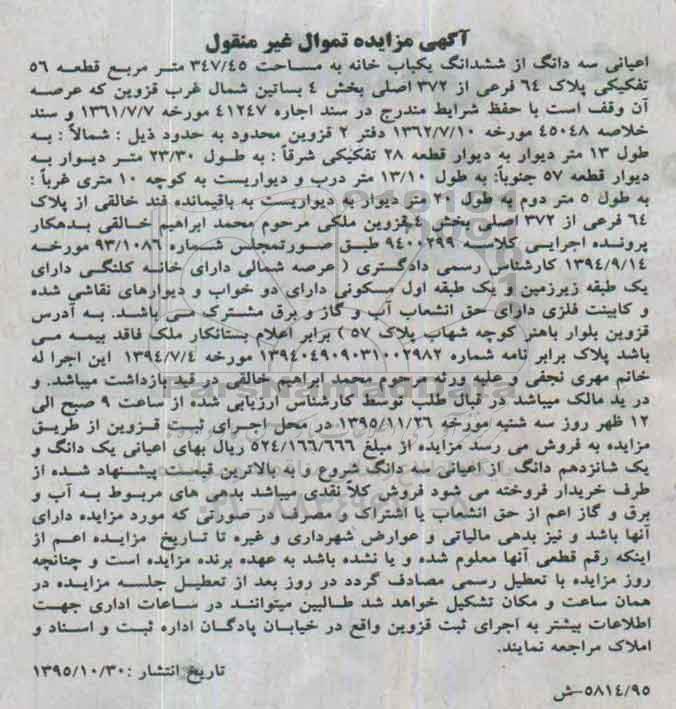 آگهی مزایده تموال غیر منقول
اعیانی سه دانگ از ششدانگ یکباب خانه به مساحت ۳۴۷/۴۵ متر مربع قطعه ۵۶
تفکیکی پلاک ۶۴ فرعی از ۳۷۲ اصلی بخش ۴ بساتین شمال غرب قزوین که عرصه
آن وقف است با حفظ شرایط مندرج در سند اجاره ۴۱۲۴۷ مورخه ۱۳۶۱/۷/۷ و سند
خلاصه ۴۵۰۴۸ مورخه ۱۳۶۲/۷/۱۰ دفتر ۲ قزوین محدود به حدود ذیل : شمالاً : به
طول ۱۳ متر دیوار به دیوار قطعه ۲۸ تفکیکی شرقاً : به طول ۲۳/۳۰ متر دیوار به
دیوار قطعه ۵۷ جنوباً: به طول ۱۳/۱۰ متر درب و دیواریست به کوچه ۱۰ متری غرباً :
به طول ۵ متر دوم به طول ۲۰ متر دیوار به دیواریست به باقیمانده فند خالقی از پلاک
۶۴ فرعی از ۳۷۲ اصلی بخش ۴ قزوین ملکی مرحوم محمد ابراهیم خالقی بدهکار
پرونده اجرایی کلاسه ۹۴۰۰۲۹۹ طبق صورتمجلس شماره ۹۳/۱۰۸۶ مورخه
۱۳۹۴/۹/۱۴ کارشناس رسمی دادگستری ( عرصه شمالی دارای خانه کلنگی دارای
یک طبقه زیرزمین و یک طبقه اول مسکونی دارای دو خواب و دیوارهای نقاشی شده
و کابینت فلزی دارای حق انشعاب آب و گاز و برق مشترک می باشد. به آدرس
قزوین بلوار باهنر کوچه شهاب پلاک ۵۷ ) برابر اعلام بستانکار ملک فاقد بیمه می
باشد پلاک برابر نامه شماره ۱۳۹۴۰۴۹۰۹۰۳۱۰۰۲۹۸۲ مورخه ۱۳۹۴/۷/۴ این اجرا له
خانم مهری نجفی و علیه ورثه مرحوم محمد ابراهیم خالقی در قید بازداشت میباشد. و
در ید مالک میباشد در قبال طلب توسط کارشناس ارزیابی شده از ساعت ۹ صبح الی
۱۲ ظهر روز سه شنبه مورخه ۱۳۹۵/۱۱/۲۶ در محل اجرای ثبت قزوین از طریق
مزایده به فروش می رسد مزایده از مبلغ ۵۲۴/۱۶۶/۶۶۶ ریال بهای اعیانی یک دانگ و
یک شانزدهم دانگ از اعیانی سه دانگ شروع و به بالاترین قیمت پیشنهاد شده از
طرف خریدار فروخته می شود فروش کلاً نقدی میباشد بدهی های مربوط به آب و
برق و گاز اعم از حق انشعاب یا اشتراک و مصرف در صورتی که مورد مزایده دارای
آنها باشد و نیز بدهی مالیاتی و عوارض شهرداری و غیره تا تاریخ مزایده اعم از
اینکه رقم قطعی آنها معلوم شده و یا نشده باشد به عهده برنده مزایده است و چنانچه
روز مزایده با تعطیل رسمی مصادف گردد در روز بعد از تعطیل جلسه مزایده در
همان ساعت و مکان تشکیل خواهد شد طالبین میتوانند در ساعات اداری جهت
اطلاعات بیشتر به اجرای ثبت قزوین واقع در خیابان پادگان اداره ثبت و اسناد و
املاک مراجعه نمایند.
تاریخ انتشار :۱۳۹۵/۱۰/۳۰
۵۸۱۴/۹۵-ش
ParsNamadData